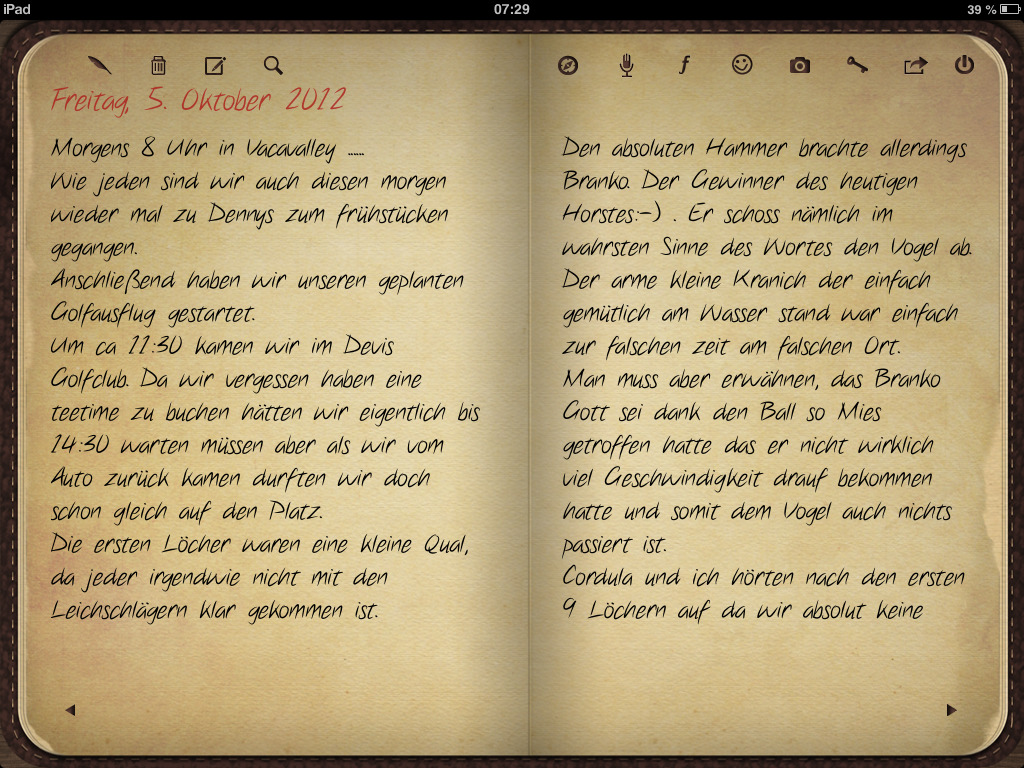 iPad
07:29
39 %
Freitag, 5. Oktober 2012
Morgens 8 Uhr in Vacavalley ......
Wie jeden sind wir auch diesen morgen
wieder mal zu Dennys zum frühstücken
gegangen.
Anschließend haben wir unseren geplanten
Golfausflug gestartet.
Um ca 11:30 kamen wir im Devis
Golfclub. Da wir vergessen haben eine
teetime zu buchen hätten wir eigentlich bis
14:30 warten müssen aber als wir vom
Auto zurück kamen durften wir doch
schon gleich auf den Platz.
Die ersten Löcher waren eine kleine Qual,
da jeder irgendwie nicht mit den
Leichschlägern klar gekommen ist.
Den absoluten Hammer brachte allerdings
Branko. Der Gewinner des heutigen
Horstes:-) . Er schoss nämlich im
wahrsten Sinne des Wortes den Vogel ab.
Der arme kleine Kranich der einfach
gemütlich am Wasser stand war einfach
zur falschen zeit am falschen Ort.
Man muss aber erwähnen, das Branko
Gott sei dank den Ball so Mies
getroffen hatte das er nicht wirklich
viel Geschwindigkeit drauf bekommen
hatte und somit dem Vogel auch nichts
passiert ist.
Cordula und ich hörten nach den ersten
9 Löchern auf da wir absolut keine